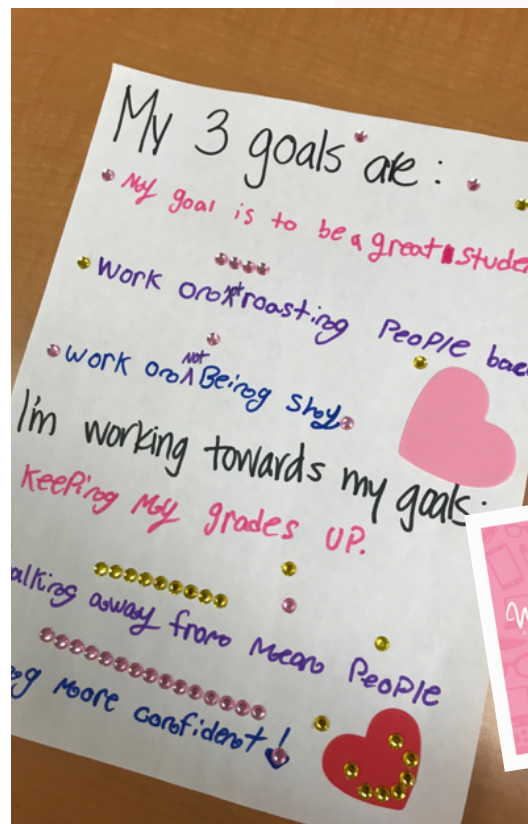 My 3 goals are :
• My goal is to be a great studen
• Work on not roasting People bac
• Work on NOT Being shy
I'm working towards my goals:
Keeping My grades UP.
alking away from Mean People
ng More confident!
W